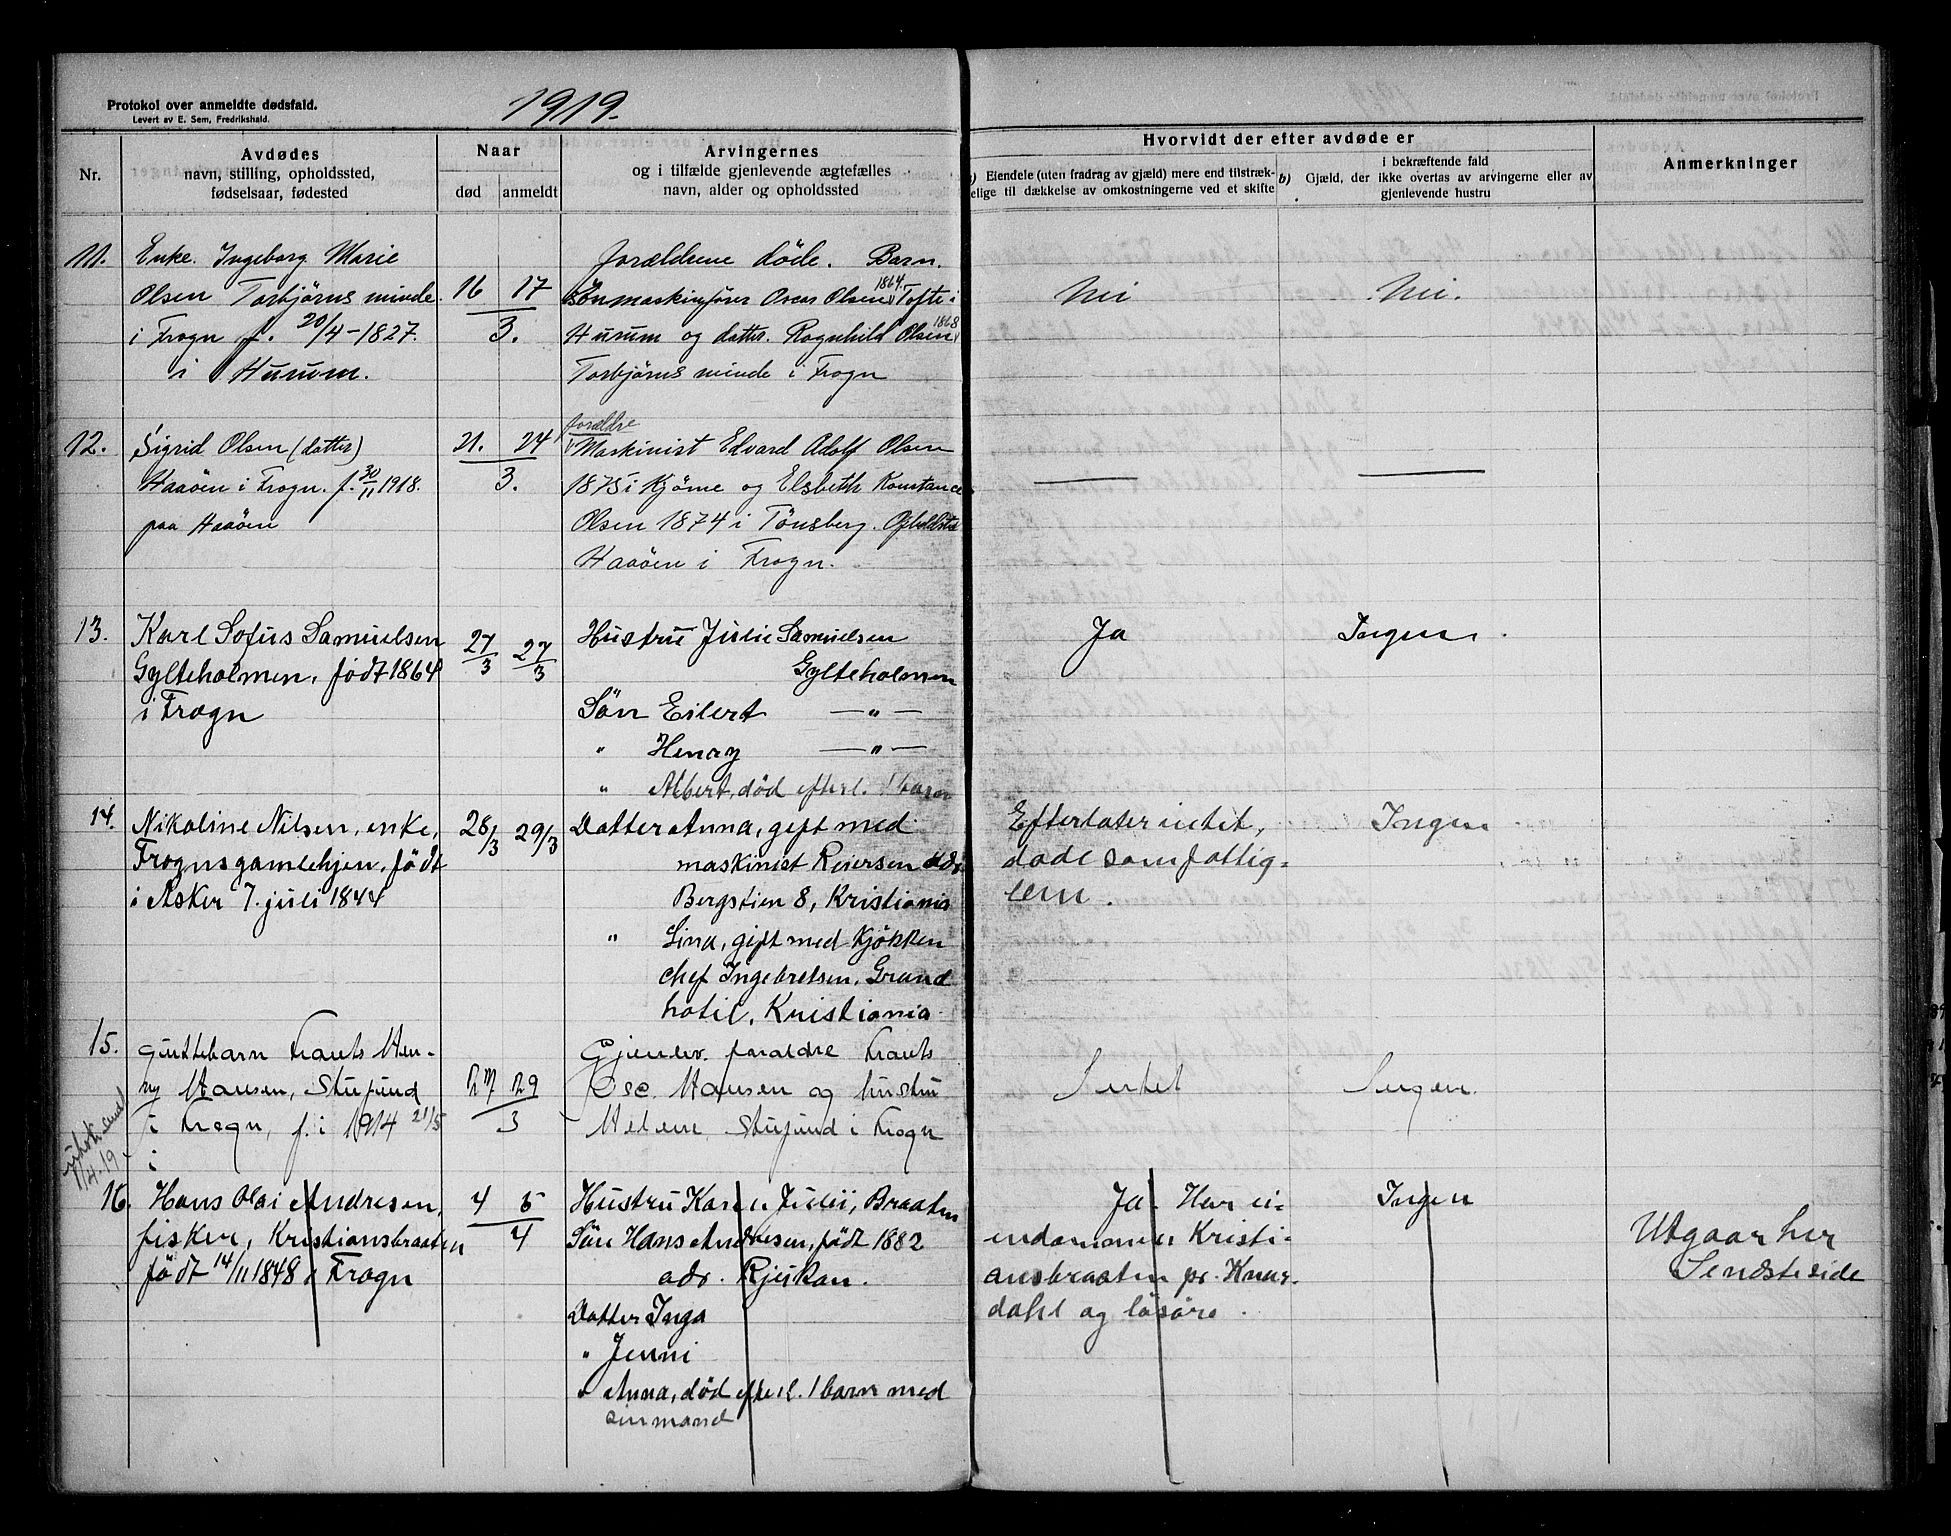 Protokol over anmeldte dødsfald.
Levert av E. Sem, Fredrikshald.
1919.
Nr.
Avdødes
navn, stilling, opholdssted,
fødselsaar, fødested
Naar
død
anmeldt
Arvingernes
og i tilfælde gjenlevende ægtefælles
navn, alder og opholdssted
Hvorvidt der efter avdøde er
a) Eiendele (uten fradrag av gjæld) mere end tilstræk-
elige til dækkelse av omkostningerne ved et skifte
i bekræftende fald
b) Gjæld, der ikke overtas av arvingerne eller av
gjenlevende hustru
Anmerkninger
11.
Enke. Ingeborg Marie
Olsen Torbjørns minde
i Frogn f. 20/4-1827.
i Hurum.
16 17
3.
Forældrene döde. Barn.
Sönmaskinfører Oscar Olsen 1864. Tofte i
Hurum og datter. Ragnhild Olsen 1868
Torbjörns minde i Frogn
Nei
Nei.
12.
Sigrid Olsen (datter)
Haaöen i Frogn. f. 30/11 1918.
paa Haaöen
21. 24
3.
forældre
Maskinist Edvard Adolf Olsen
1875 i Kjöme og Elsbeth Konstance
Olsen 1874 i Tönsberg. Opholdsted
Haaöen i Frogn.
13.
Karl Sofus Samuelsen
Gylteholmen, født 1864
i Frogn
27/3 27/3
Hustru Julie Samuelsen
Gylteholmen
Sön Eilert —"—
" Henry —"—
" Albert, död efterl. 1 barn
Ja
Ingen.
14.
Nikoline Nilsen, enke,
Frognsgamlehjen, født
i Asker 7. juli 1844
28/3 29/3
Datter Anna, gift med
maskinist Reiersen adr.
Bergstien 8, Kristiania
" Lina, gift med Kjökken
chef Ingebretsen, Grand
hotel, Kristiania.
Efterlater intet,
döde som fattig-
lem.
Ingen
15.
guttebarn Frants Hen-
ry Hansen, Stupund
i Frogn, f. i 1914 21/5
i
27 29
3
Gjenlev. foraldre Frants
Osc. Hansen og hustru
Helene Stupund i Frogn
Intet
Ingen.
1/4-19.
16.
Hans Olai Andresen,
fisker, Kristiansbraaten
født 14/11 1848 i Frogn
4 5
4
Hustru Karen Julii, Braaten
Sön Hans Andresen, født 1882
adr. Rjukan.
Datter Inga
" Jenni
" Anna, död efterl. 1 barn med
sin mand
Ja. Har ei-
endommen Kristi-
ansbraaten pr. Knar-
dahl og lösöre.
Ingen
Utgaar her
Se næste side